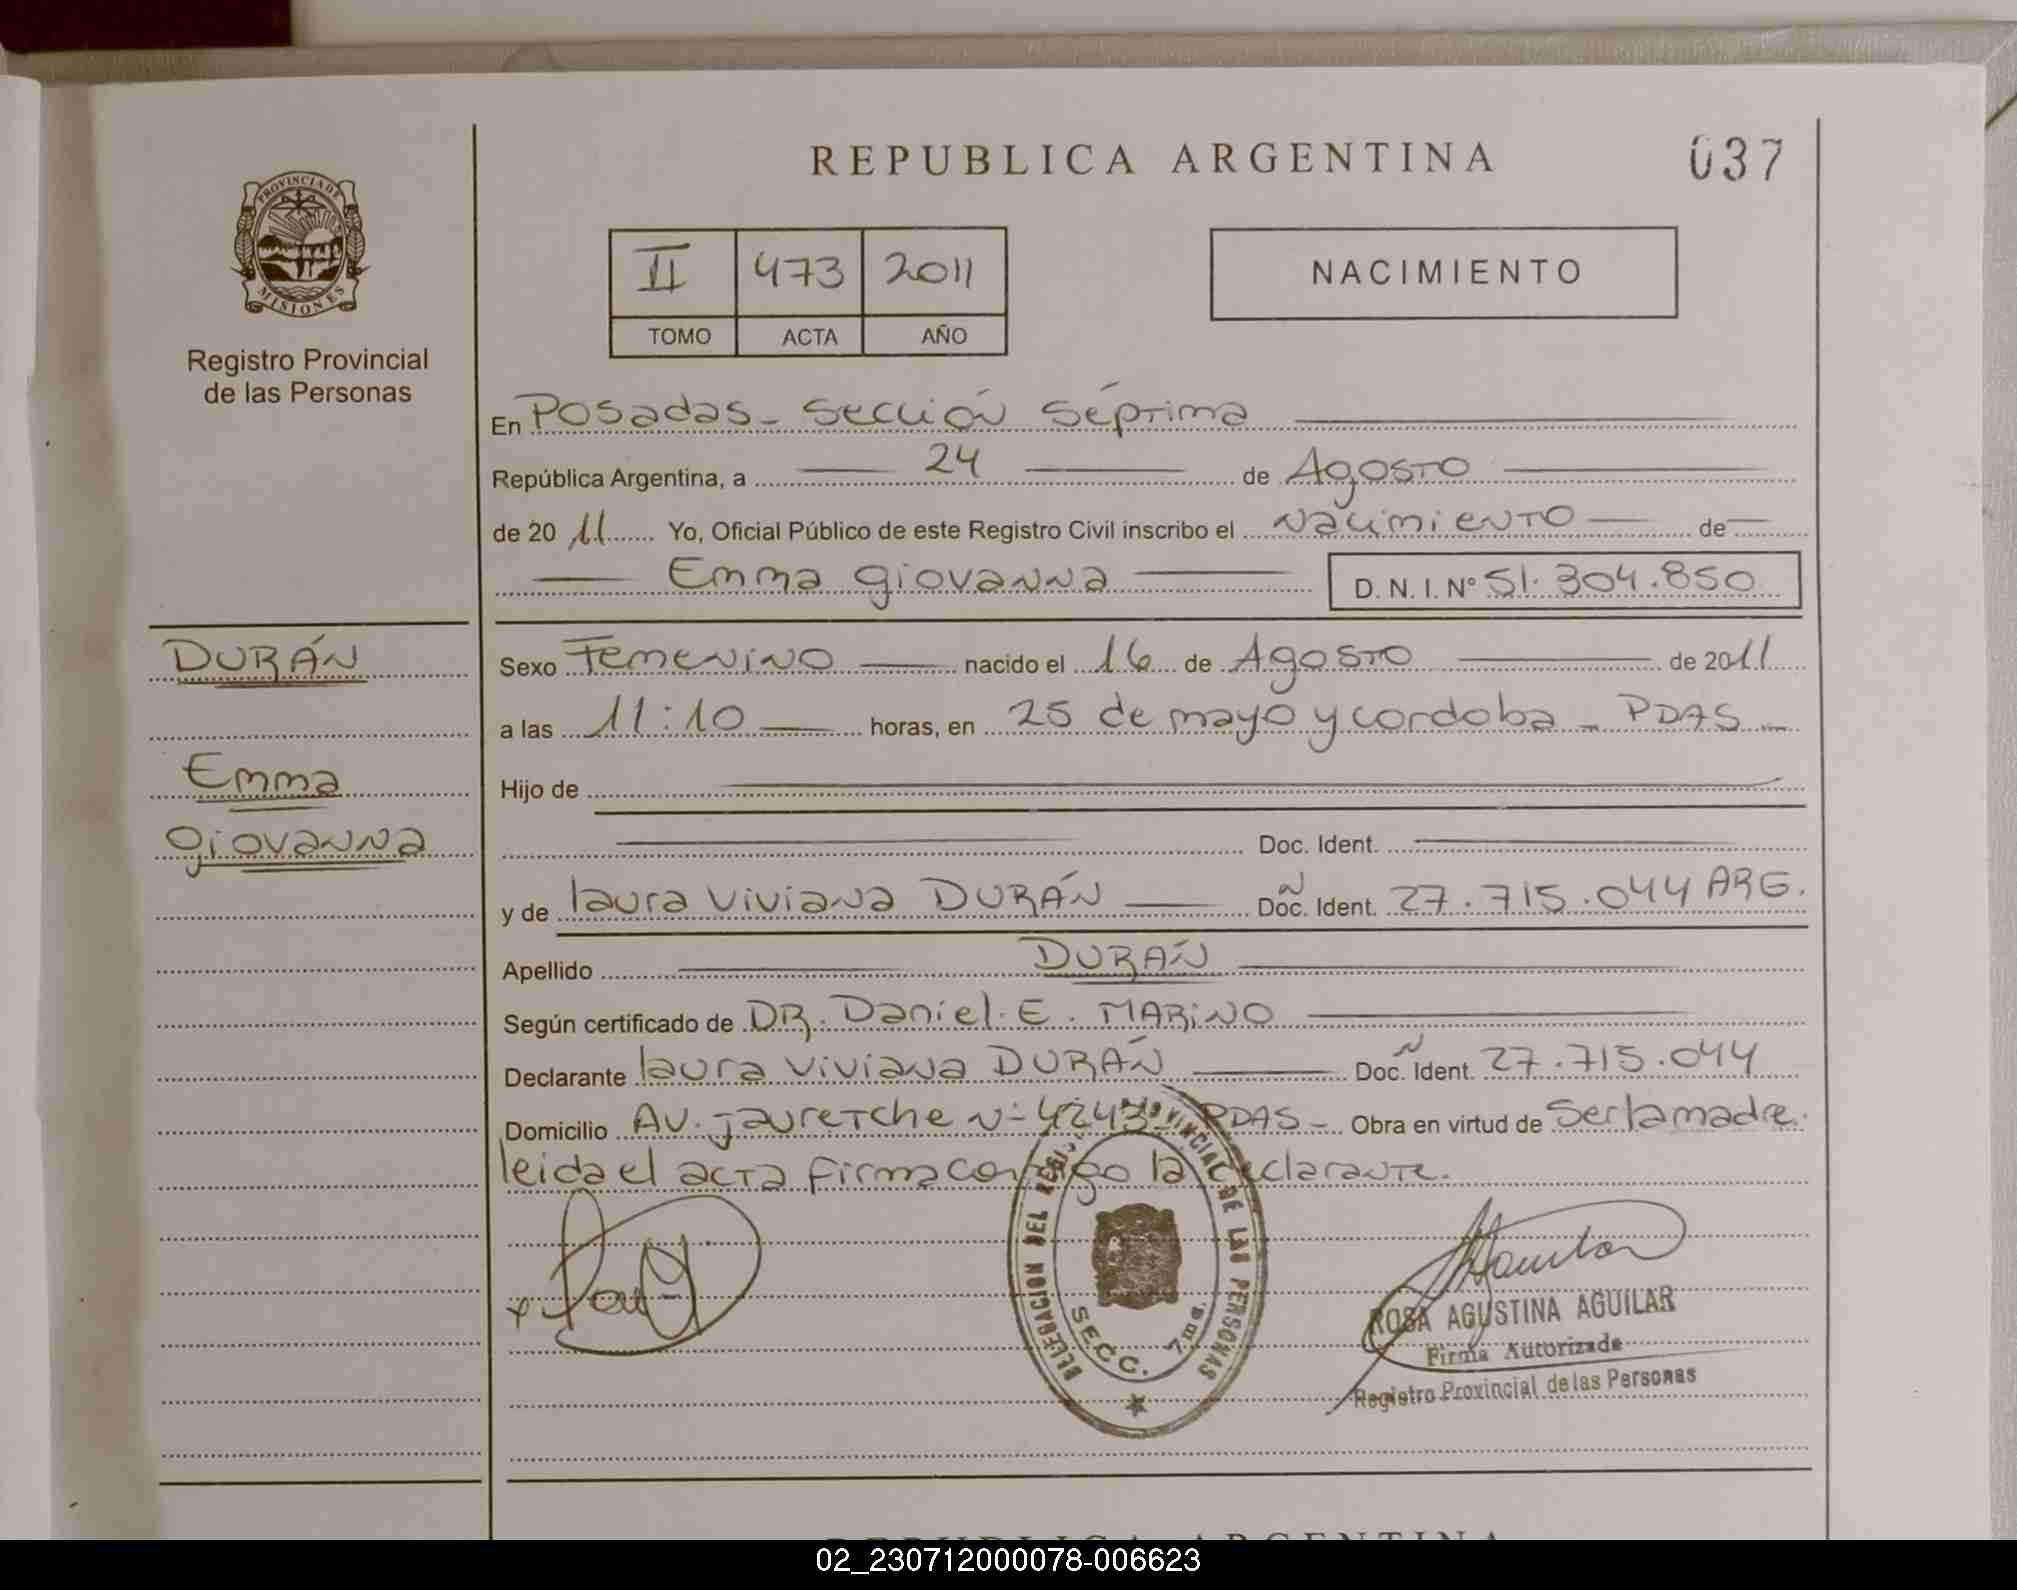 PROVINCIA DE
MISIONES
Registro Provincial
de las Personas
REPUBLICA ARGENTINA
037
II 473 2011
TOMO ACTA AÑO
NACIMIENTO
En Posadas - Sección Séptima
República Argentina, a 24 de Agosto
de 2011 Yo, Oficial Público de este Registro Civil inscribo el Nacimiento de
Emma Giovanna D.N.I.Nº 51.304.850
DURÁN
Emma
Giovanna
Sexo Femenino nacido el 16 de Agosto de 2011
a las 11:10 horas, en 25 de mayo y cordoba - PDAS -
Hijo de
Doc. Ident.
y de laura Viviana DURÁN Doc. Ident. 27.715.044 ARG.
Apellido DURÁN
Según certificado de DR. Daniel. E. MARINO
Declarante laura Viviana DURÁN Doc. Ident. 27.715.044
Domicilio AV. Jauretche Nº 4243 - PDAS - Obra en virtud de Ser la madre.
leida el acta firma conmigo la declarante.
DELEGACION DEL REGISTRO PROVINCIAL DE LAS PERSONAS
SECC. 7ma.
ROSA AGUSTINA AGUILAR
Firma Autorizada
Registro Provincial de las Personas
REPUBLICA ARGENTINA
02_230712000078-006623